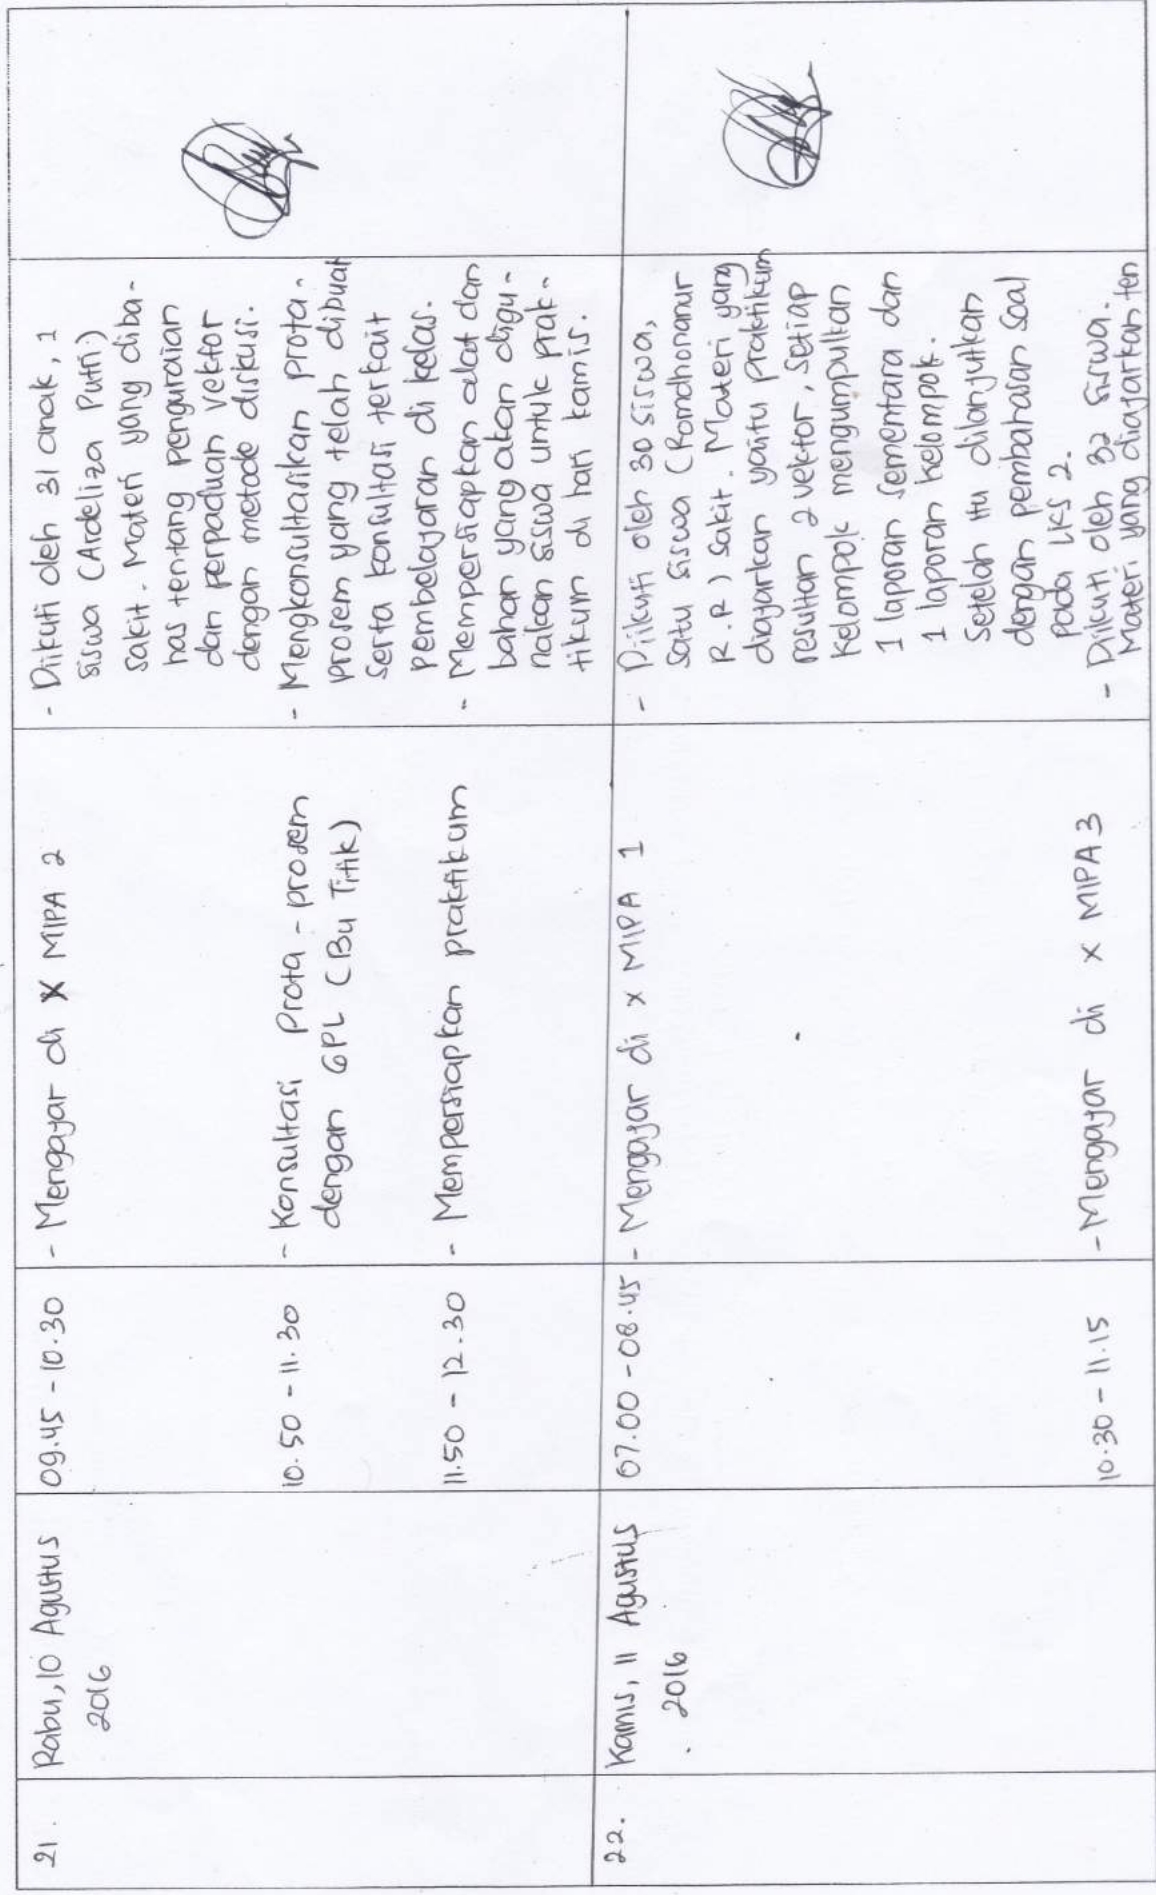 21.
Rabu, 10 Agustus
2016
09.45 - 10.30
- Mengajar di X MIPA 2
- Diikuti oleh 31 anak, 1
siswa (Ardeliza Putri)
sakit. Materi yang diba-
has tentang penguraian
dan perpaduan vektor
dengan metode diskusi.
10.50 - 11.30
- Konsultasi Prota - prosem
dengan GPL (Bu Titik)
- Mengkonsultasikan prota -
prosem yang telah dibuat
serta konsultasi terkait
pembelajaran di kelas.
11.50 - 12.30
- Mempersiapkan praktikum
- Mempersiapkan alat dan
bahan yang akan digu-
nakan siswa untuk prak-
tikum di hari kamis.
22.
Kamis, 11 Agustus
2016
07.00 - 08.45
- Mengajar di X MIPA 1
- Diikuti oleh 30 siswa,
satu siswa (Romdhonanur
R.R) sakit. Materi yang
diajarkan yaitu praktikum
resultan 2 vektor, setiap
kelompok mengumpulkan
1 laporan sementara dan
1 laporan kelompok.
Setelah itu dilanjutkan
dengan pembahasan soal
pada LKS 2.
10.30 - 11.15
- Mengajar di X MIPA 3
- Diikuti oleh 32 siswa.
Materi yang diajarkan ten